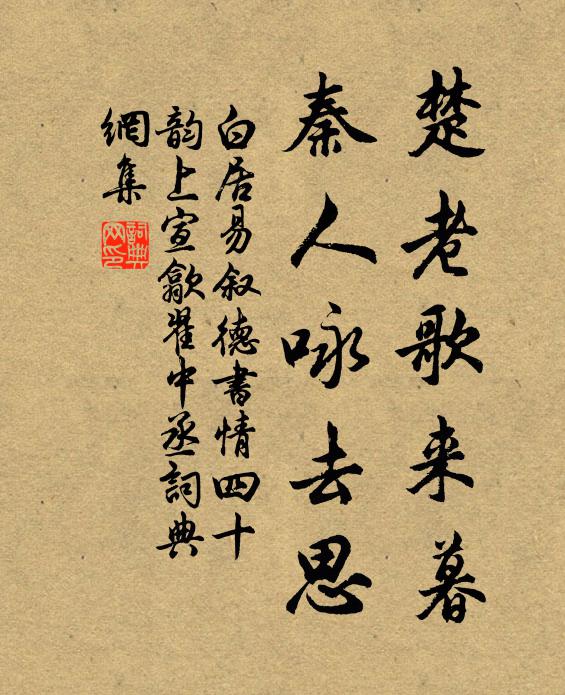 楚老歌来暮
秦人咏去思
白居易叙德書情四十
韵上宣歙翟中丞詞典
網集
詞典
网印